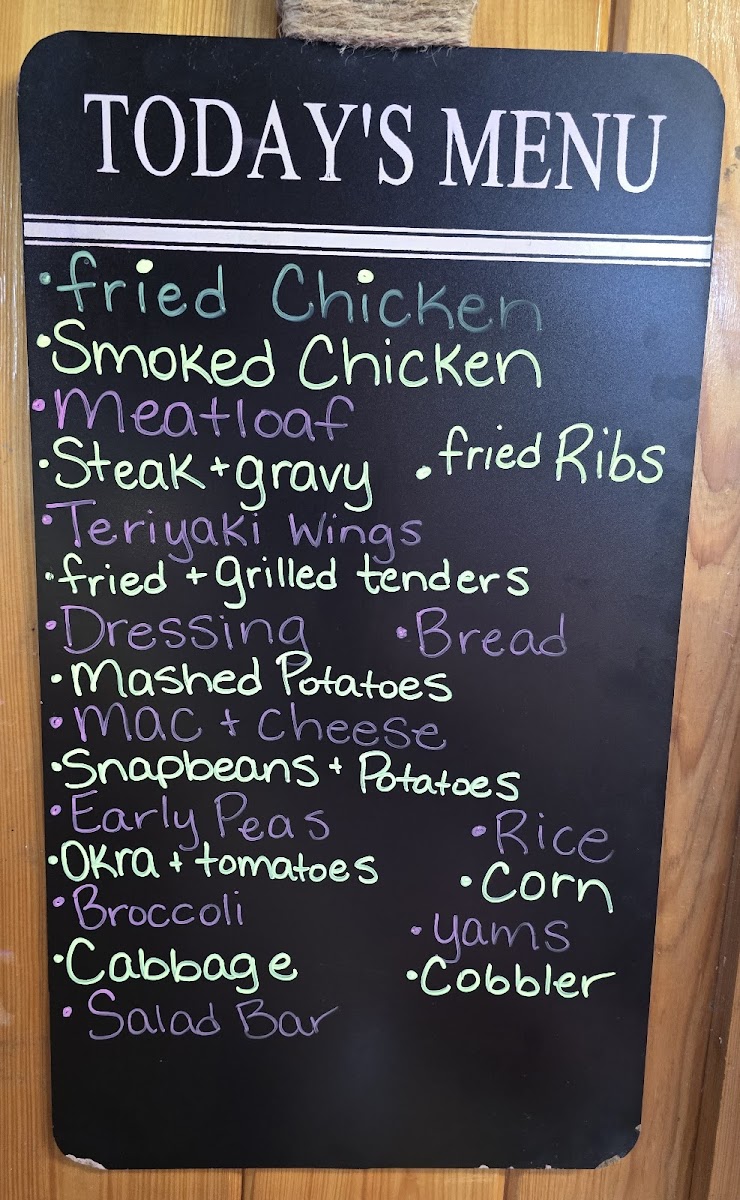 TODAY'S MENU
• fried Chicken
• Smoked Chicken
• Meatloaf
• Steak + gravy • fried Ribs
• Teriyaki Wings
• fried + grilled tenders
• Dressing • Bread
• Mashed Potatoes
• Mac + cheese
• Snapbeans + Potatoes
• Early Peas • Rice
• Okra + tomatoes • Corn
• Broccoli • yams
• Cabbage • Cobbler
• Salad Bar